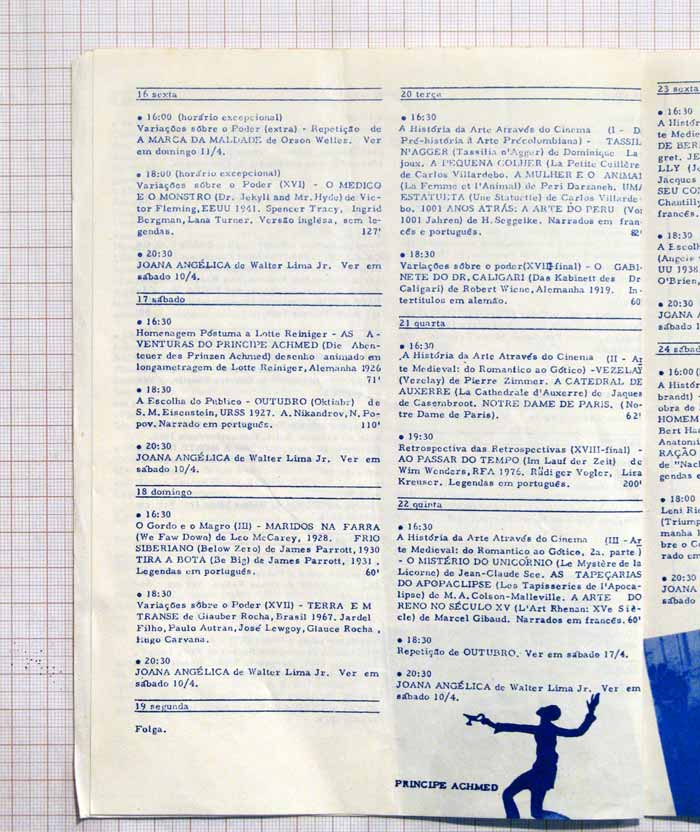 16 sexta
● 16:00 (horário excepcional)
Variações sôbre o Poder (extra) - Repetição de
A MARCA DA MALDADE de Orson Welles. Ver
em domingo 11/4.
● 18:00 (horário excepcional)
Variações sôbre o Poder (XVI) - O MEDICO
E O MONSTRO (Dr. Jekyll and Mr. Hyde) de Vic-
tor Fleming, EEUU 1941. Spencer Tracy, Ingrid
Bergman, Lana Turner. Versão inglêsa, sem le-
gendas. 127'
● 20:30
JOANA ANGÉLICA de Walter Lima Jr. Ver em
sábado 10/4.
17 sábado
● 16:30
Homenagem Póstuma a Lotte Reiniger - AS A -
VENTURAS DO PRINCIPE ACHMED (Die Aben-
teuer des Prinzen Achmed) desenho animado em
longametragem de Lotte Reiniger, Alemanha 1926
71'
● 18:30
A Escolha do Publico - OUTUBRO (Oktiabr) de
S. M. Eisenstein, URSS 1927. A. Nikandrov, N. Po-
pov. Narrado em português. 110'
● 20:30
JOANA ANGÉLICA de Walter Lima Jr. Ver em
sábado 10/4.
18 domingo
● 16:30
O Gordo e o Magro (III) - MARIDOS NA FARRA
(We Faw Down) de Leo McCarey, 1928. FRIO
SIBERIANO (Below Zero) de James Parrott, 1930
TIRA A BOTA (Be Big) de James Parrott, 1931 .
Legendas em português. 60'
● 18:30
Variações sôbre o Poder (XVII) - TERRA E M
TRANSE de Glauber Rocha, Brasil 1967. Jardel
Filho, Paulo Autran, José Lewgoy, Glauce Rocha ,
Hugo Carvana.
● 20:30
JOANA ANGÉLICA de Walter Lima Jr. Ver em
sábado 10/4.
19 segunda
Folga.
20 terça
● 16:30
A História da Arte Através do Cinema (I - D
Pré-história à Arte Précolombiana) - TASSIL
N'AGGER (Tassilia n'Agger) de Dominique La -
joux. A PEQUENA COLHER (La Petite Cuillère
de Carlos Villardebo. A MULHER E O ANIMAL
(La Femme et l'Animal) de Peri Darzaneh. UMA
ESTATUETA (Une Statuette) de Carlos Villarde-
bo. 1001 ANOS ATRÁS: A ARTE DO PERU (Vor
1001 Jahren) de H. Seggelke. Narrados em fran-
cês e português. 82'
● 18:30
Variações sôbre o poder (XVIII-final) - O GABI-
NETE DO DR. CALIGARI (Das Kabinett des Dr
Caligari) de Robert Wiene, Alemanha 1919. In-
tertítulos em alemão. 60
21 quarta
● 16:30
A História da Arte Através do Cinema (II - Ar
te Medieval: do Romantico ao Gótico) - VEZELAY
(Vezelay) de Pierre Zimmer. A CATEDRAL DE
AUXERRE (La Cathedrale d'Auxerre) de Jaques
de Casembroot. NOTRE DAME DE PARIS. (No-
tre Dame de Paris). 62'
● 19:30
Retrospectiva das Retrospectivas (XVIII-final) -
AO PASSAR DO TEMPO (Im Lauf der Zeit) de
Wim Wenders, RFA 1976. Rüdiger Vogler, Lisa
Kreuser. Legendas em português. 200'
22 quinta
● 16:30
A História da Arte Através do Cinema (III - Ar
te Medieval: do Romantico ao Gótico, 2a. parte )
- O MISTÉRIO DO UNICÓRNIO (Le Mystère de la
Licorne) de Jean-Claude See. AS TAPEÇARIAS
DO APOPACLIPSE (Les Tapisseries de l'Apoca-
lipse) de M. A. Colson-Malleville. A ARTE DO
RENO NO SÉCULO XV (L'Art Rhenan: XVe Siè-
cle) de Marcel Gibaud. Narrados em francês. 60'
● 18:30
Repetição de OUTUBRO. Ver em sábado 17/4.
● 20:30
JOANA ANGÉLICA de Walter Lima Jr. Ver em
sábado 10/4.
PRINCIPE ACHMED
23 sexta
● 16:30
A Histór
te Medie
DE BER
gret. JE
LLY (Je
Jacques
SEU CO
Chantilly
francês
● 18:30
A Escol
(Angels
UU 1938
O'Brien,
● 20:30
JOANA
sábado 1
24 sábad
● 16:00 (
A Histór
brandt) -
obra de
HOMEM
Bert Haa
Anatomi
RAÇÃO
de "Nach
gendas e
● 18:00
Leni Rie
(Triump
manha 1
bre o Co
rado em
● 20:30
JOANA
sábado